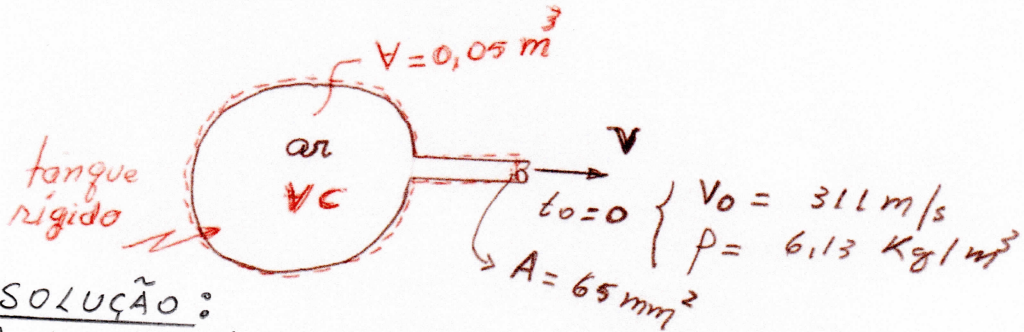 ∀ = 0,05 m³
ar
VC
tanque
rígido
V
t₀=0 { V₀ = 311 m/s
ρ = 6,13 Kg/m³
A = 65 mm²
SOLUÇÃO :